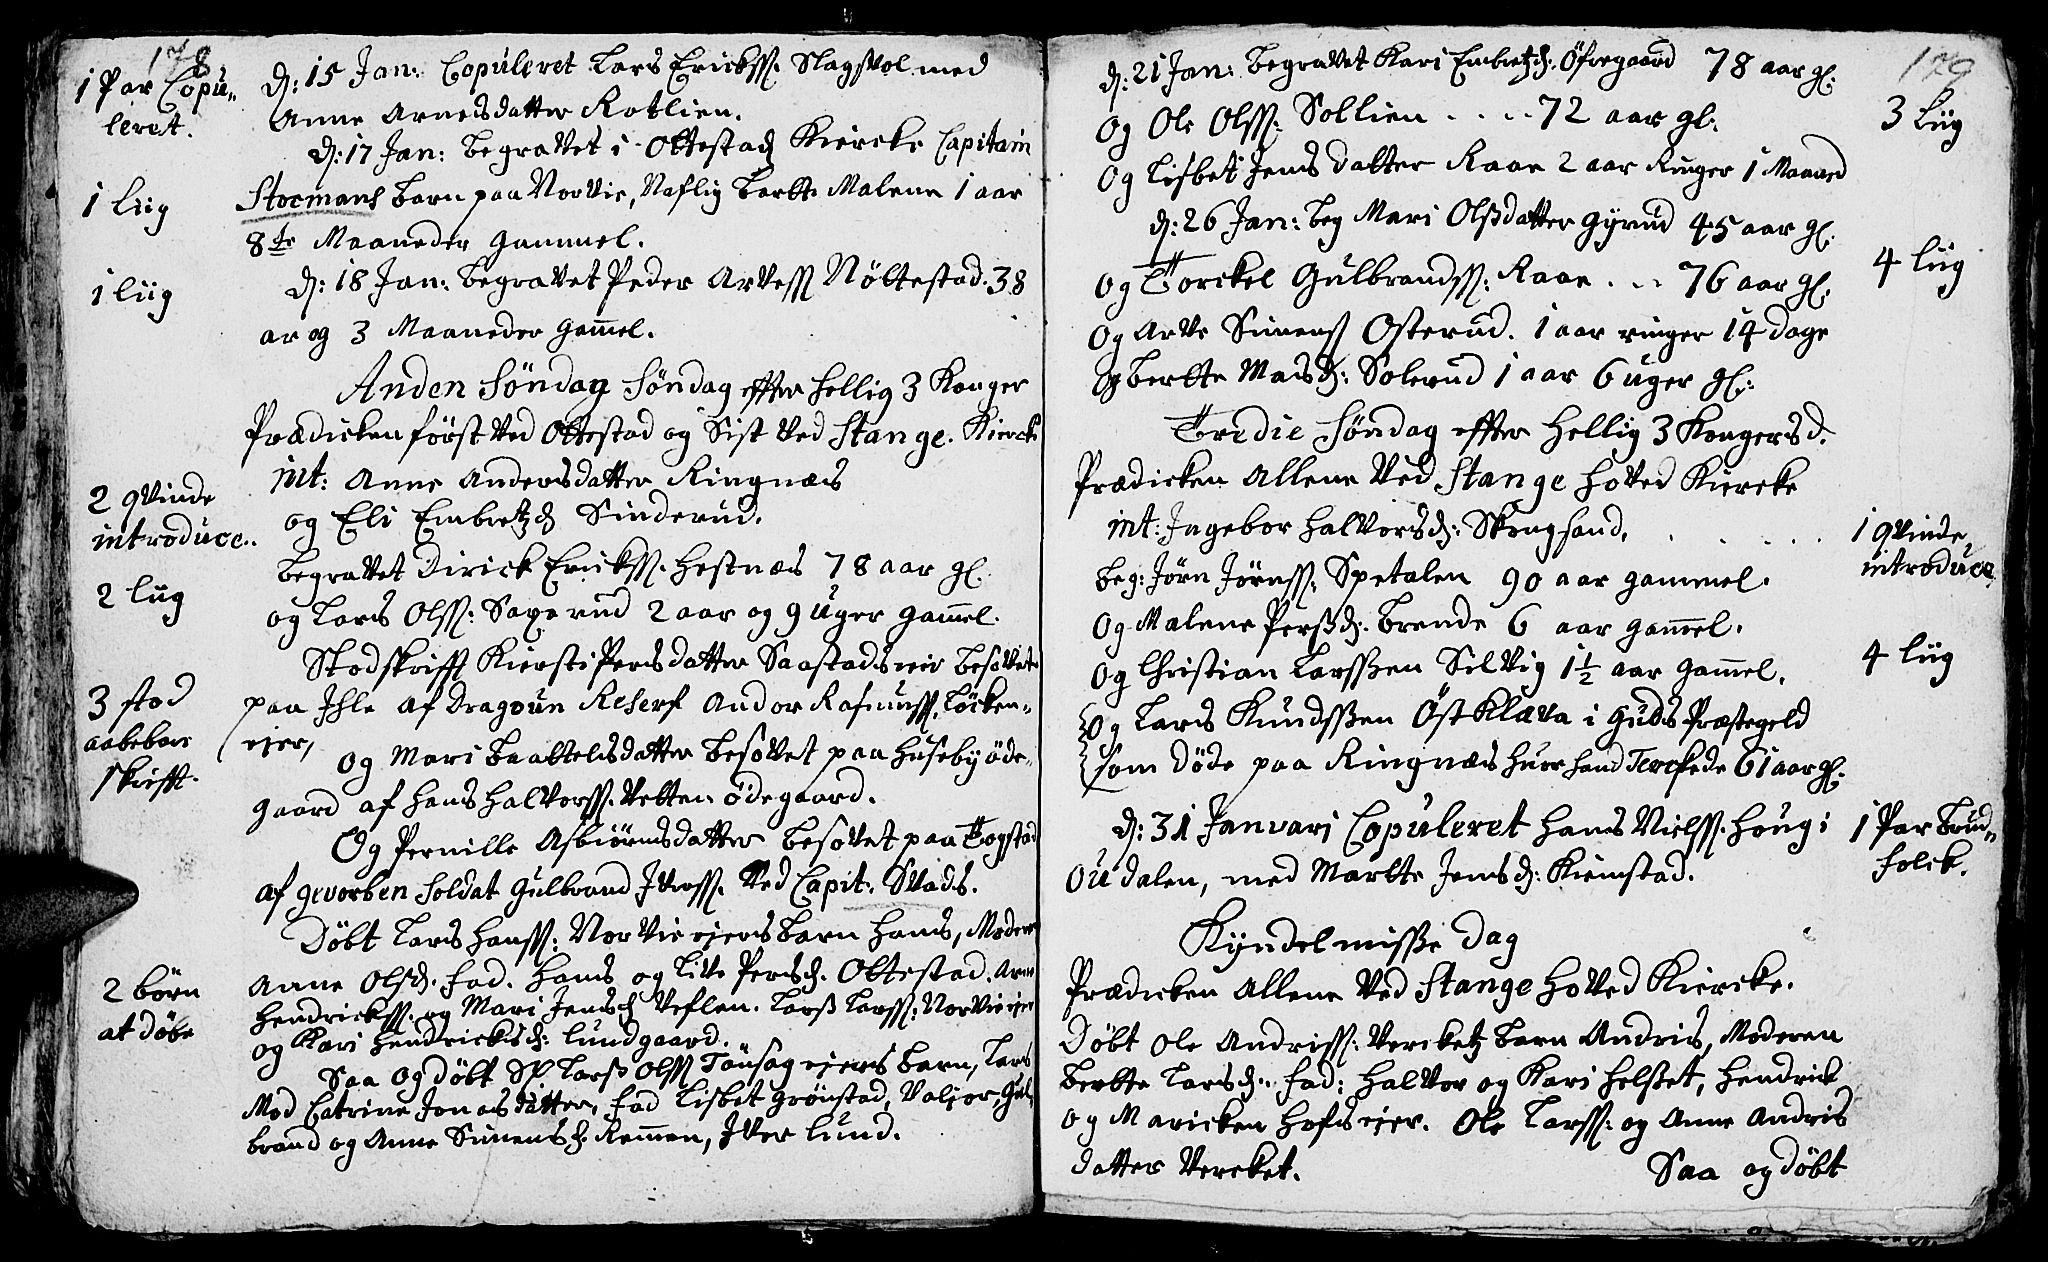 178
1 Par Copu„
leret.
d: 15 Jan: Copuleret Lars Erichss. Slagsvol med
Anne Arnesdatter Rotlien.
d: 17 Jan: begravet i Ottestad Kiercke Capitain
1 liig
Stocmans barn paa Norvie, Naflig berte Malene 1 aar
8te Maaneder gammel.
1 liig
d: 18 Jan: begravet Peder Arvess Nöttestad. 38
ar og 3 Maaneder gam̄el.
Anden Söndag Söndag effter hellig 3 Konger
Prædicken först ved Ottestad og Sist ved Stange. Kiercke
2 qvinde
introduce..
int: Anne Andersdatter Ringnæs
og Eli Embretzd Sinderud.
2 liig
begravet Dirick Erickss. hestnæs 78 aar gl.
og Lars Olss: Saxerud 2 aar og 9 uger gam̄el.
3 stod
aabebar
skrifft.
Stodskrifft Kiersti Persdatter Saastads eie besovet
paa Ihle af Dragoun Reserf Andor Rasmuss. Löcken„
eier,
og Mari Baartelsdatter besovet paa Huseby öde„
gaard af hans halvorss. Vetten ödegaard.
Og Pernille Asbiörnsdatter besovet paa Togstad
af gevorben soldat Gulbrand Iverss. ved Capit: Svads.
2 börn
at döbe
Döbt Lars Hanss: Norvie eiers barn Hans, Moderen
Anne Olsd. fad. Hans og Live Persd. Ottestad. Arne
Hendrickss. og Mari Jensd Veflen. Larss Larss: Norvie eier
og Kari Hendricksd: Lundgaard.
Saa og döbt Sl Larss Olss Tönsag eiers barn, Lars
Mod Catrine Jonasdatter, fad Lisbet Grönstad, Valior, Gul„
brand og Anne Simensd. Remmen, Iver Lund.
179
d: 21 Jan: begravet Kari Embretzd: Öfvegaard 78 aar gl.
3 liig
og Ole Olss: Sollien . . . . 72 aar gl:
og Lisbet Jens datter Raae 2 aar Ringer 1 Maaned
d: 26 Jan: beg Mari Olssdatter Gyrud 45 aar gl.
4 liig
og Torckel Gulbrandss: Raae . . . 76 aar gl.
og Arve Simens Osterud. 1 aar ringer 14 dage
og bertte Madsd: Solerud 1 aar 6 uger gl:
Tredie Söndag effter Hellig 3 Kongersd.
Prædicken Allene ved Stange hoved Kiercke
int: Ingebor halvorsd: Skougsand, . . . . .
1 qvinde
introduce
beg: Jörn Jörnss. Spetalen 90 aar gammel.
og Malene Perssd: brende 6 aar gam̄el.
4 liig
og Christian Larssen Silvig 1½ aar gam̄el.
og Lars Knudssen Östklæva i Guds Præstegeld
som döde paa Ringnæs huor hand Terskede 61 aar gl.
1 Par brud„
folck.
d: 31 Januari Copuleret Hans Nielss. Houg i
Oudalen, med Martte Jensd: Kiemstad.
Kyndelmisse dag
Prædicken Allene ved Stange hoved Kiercke.
Döbt Ole Andriss: Vercketz barn Andris, Moderen
bertte Larsd. fad: Halvor og Kari Helset, Hendrick
og Maricken Hofs eier. Ole Larss: og Anne Andris
datter Vercket.
Saa og döbt